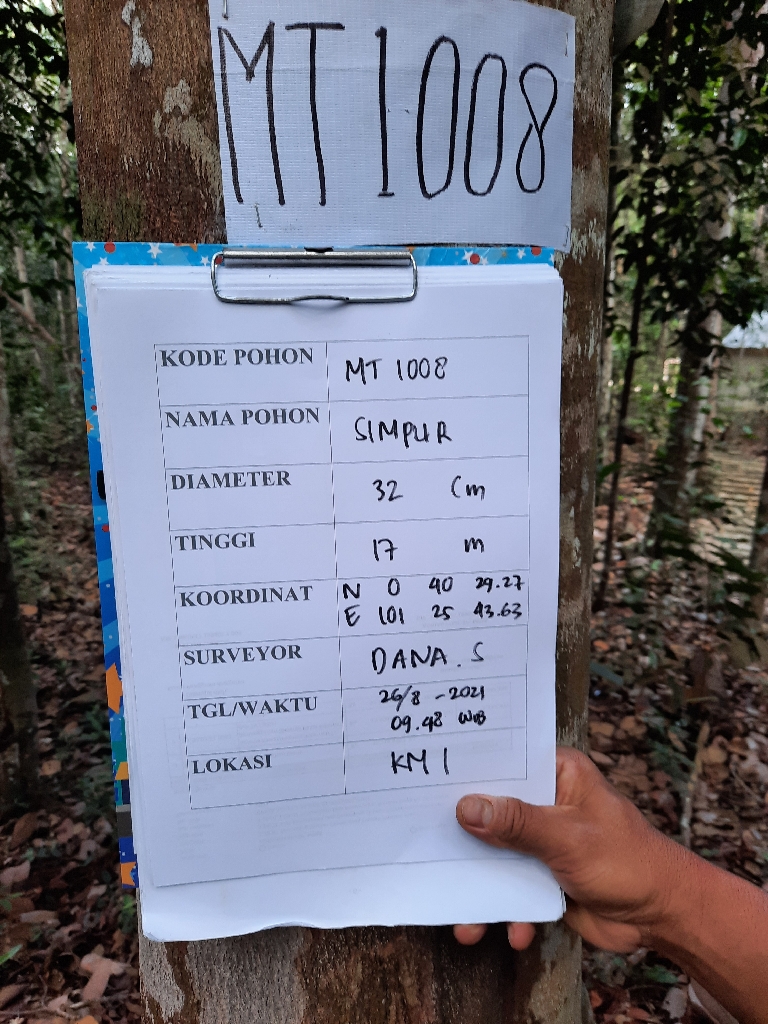 MT 1008
KODE POHON MT 1008
NAMA POHON SIMPUR
DIAMETER 32 Cm
TINGGI 17 m
KOORDINAT N 0 40 29.27
E 101 25 43.63
SURVEYOR DANA. S
TGL/WAKTU 26/8 - 2021
09.48 WIB
LOKASI KM 1